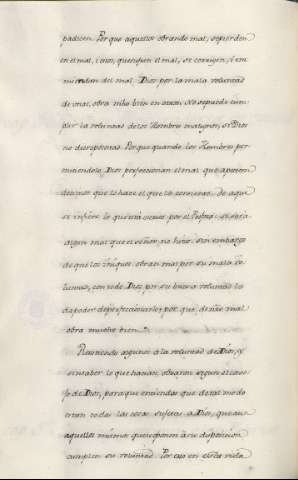 padecen. Porque aquellos obrando mal, se pierden
en el mal, i estos, que sufren el mal, se corrigen, i en
miendan del mal. Dios por la mala voluntad
de unos, obra mucho bien en otros. No se puede cum
plir la voluntad de los Hombres malignos, si Dios
no da es potestad. Porque quando los Hombres per
mitiendolo Dios perfeccionan el mal que apetecen
del que lo haze el que lo consiente. de aqui
se infiere lo que está escrito por el Profeta: si habrá
algun mal que el señor no hizo. Sin embargo
de que los iniquos obran mal por su mala vo
luntad, con todo Dios por su buena voluntad lo
da poder de perfeccionarlo; por que, de este mal
obra mucho bien.
Resistiendo algunos á la voluntad de Dios, y
sin saber lo que hacian, obraron segun el conse
jo de Dios, para que entiendas que de tal modo
estan todas las cosas sujetas á Dios, que aun
aquellos mismos que se oponen á su disposicion
cumplen su voluntad. Por eso en esta vida